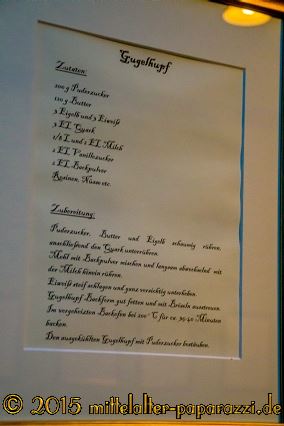 Gugelhupf
Zutaten:
200 g Puderzucker
120 g Butter
3 Eigelb und 3 Eiweiß
3 EL Quark
1/8 L und 2 EL Milch
2 EL Vanillezucker
2 EL Backpulver
Rosinen, Nüsse etc.
Zubereitung:
Puderzucker, Butter und Eigelb schaumig rühren,
anschließend den Quark unterrühren.
Mehl mit Backpulver mischen und langsam abwechselnd mit
der Milch hinein rühren.
Eiweiß steif schlagen und ganz vorsichtig unterheben.
Gugelhupf Backform gut fetten und mit Bröseln ausstreuen.
Im vorgeheizten Backofen bei 200° C für ca. 35-40 Minuten
backen.
Den ausgekühlten Gugelhupf mit Puderzucker bestäuben.
© 2015 mittelalter-paparazzi.de